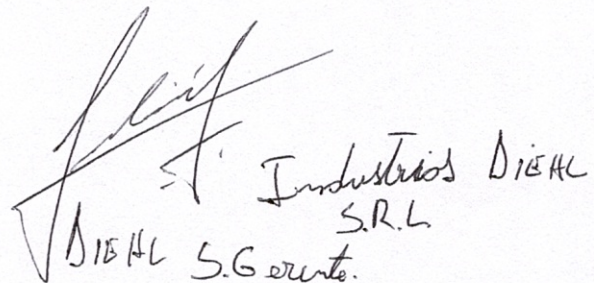 Industrias DIEHL
S.R.L.
DIEHL S.Gerente.